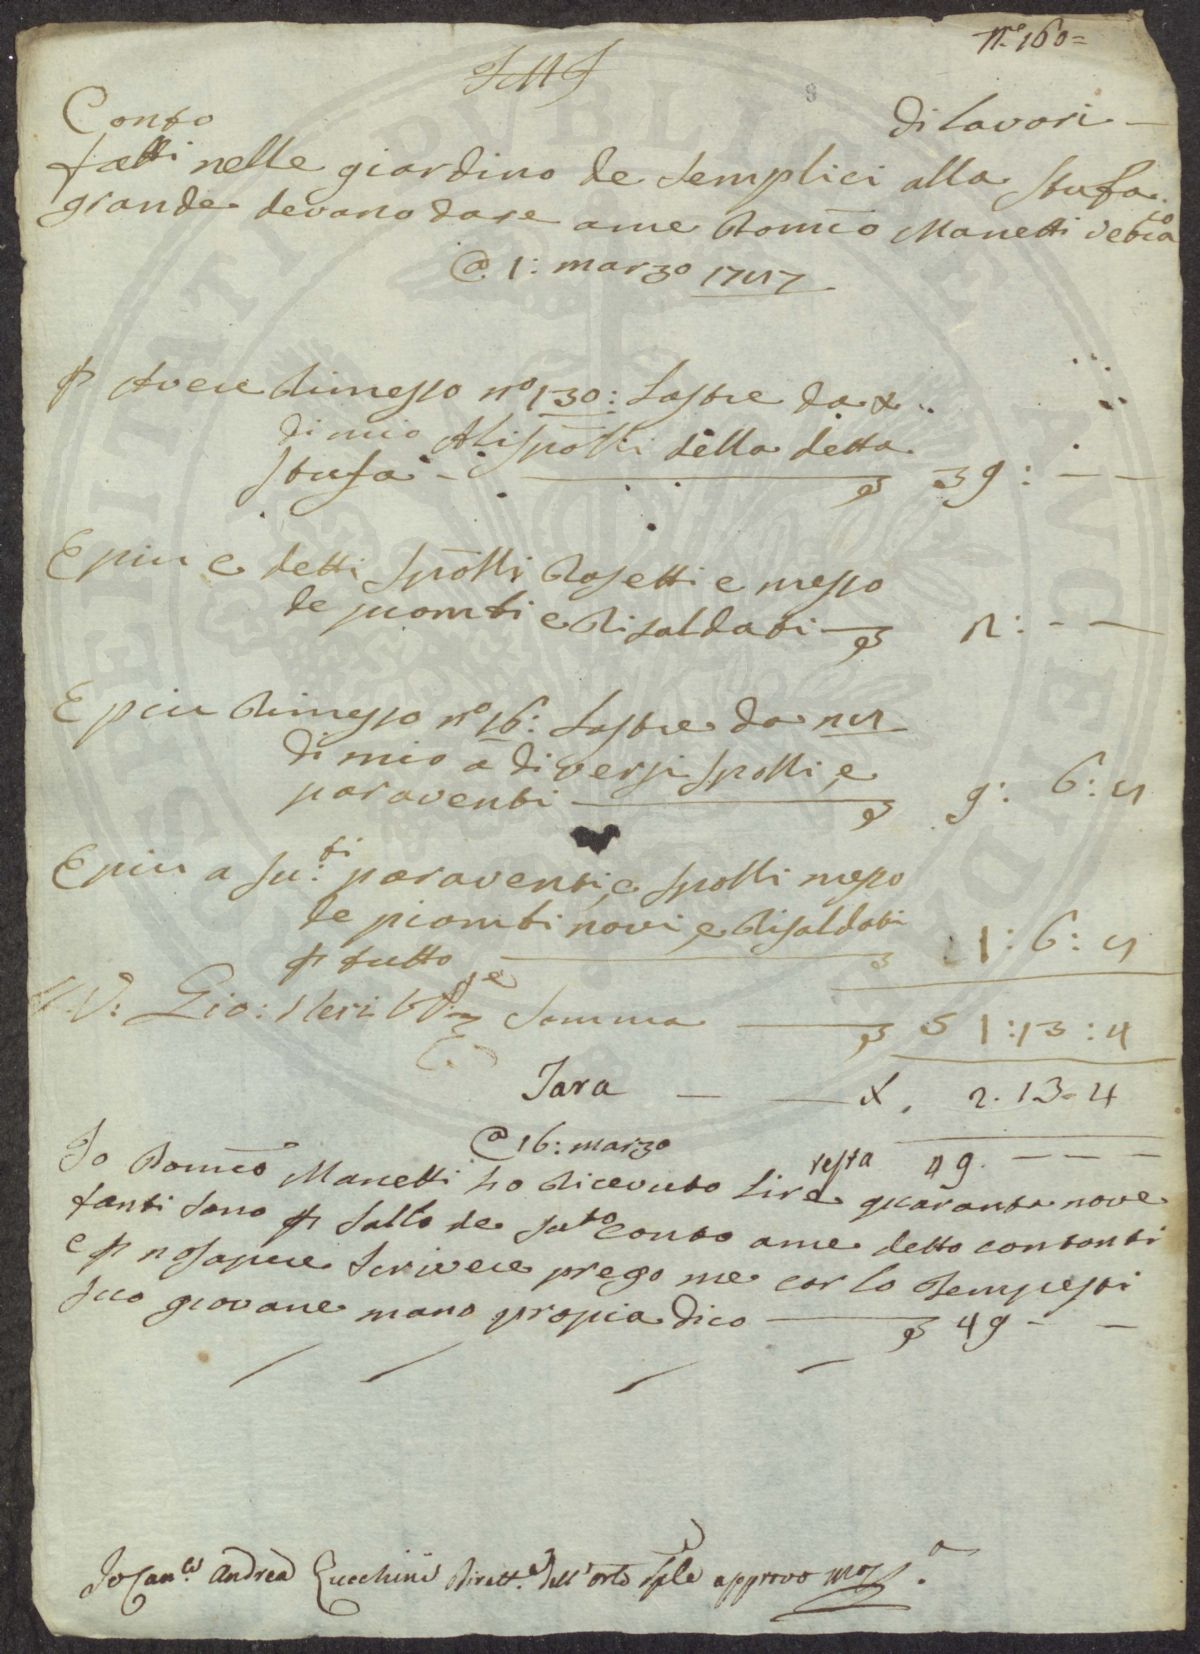 N.° 160=
JMJ
Conto di lavori
fatti nelle giardino de semplici alla stufa
grande devano dare a me Rom.co Manetti vetraio
@ 1: marzo
p avere rimesso n° 130: lastre da
di mio Alispōlli della detta
stufa 39: - -
E piu e detti spōlli rasetti e messo
de piombi e risaldati 12: - -
E piu rimesso n° 16: lastre da
di mio a diversi spolli e
paraventi 9: 6: 4
E piu a su.ti paraventi, e spolli messo
de piombi novi, e risaldati
p tutto 1: 6: 4
V: Gio: Neri Somma 51:13:4
Tara 2.13-4
@ 16: marzo resta 49. - - -
Io Rom.co Manetti ho ricevuto lire quaranta nove
tanti sono p saldo de sud.to conto a me detto contanti
e p no sapere scrivere prego me carlo Tempesti
suo giovane mano propia dico 49 - -
Io Can.co Andrea Zucchini Dirett.e dell'orto Sp.le approvo